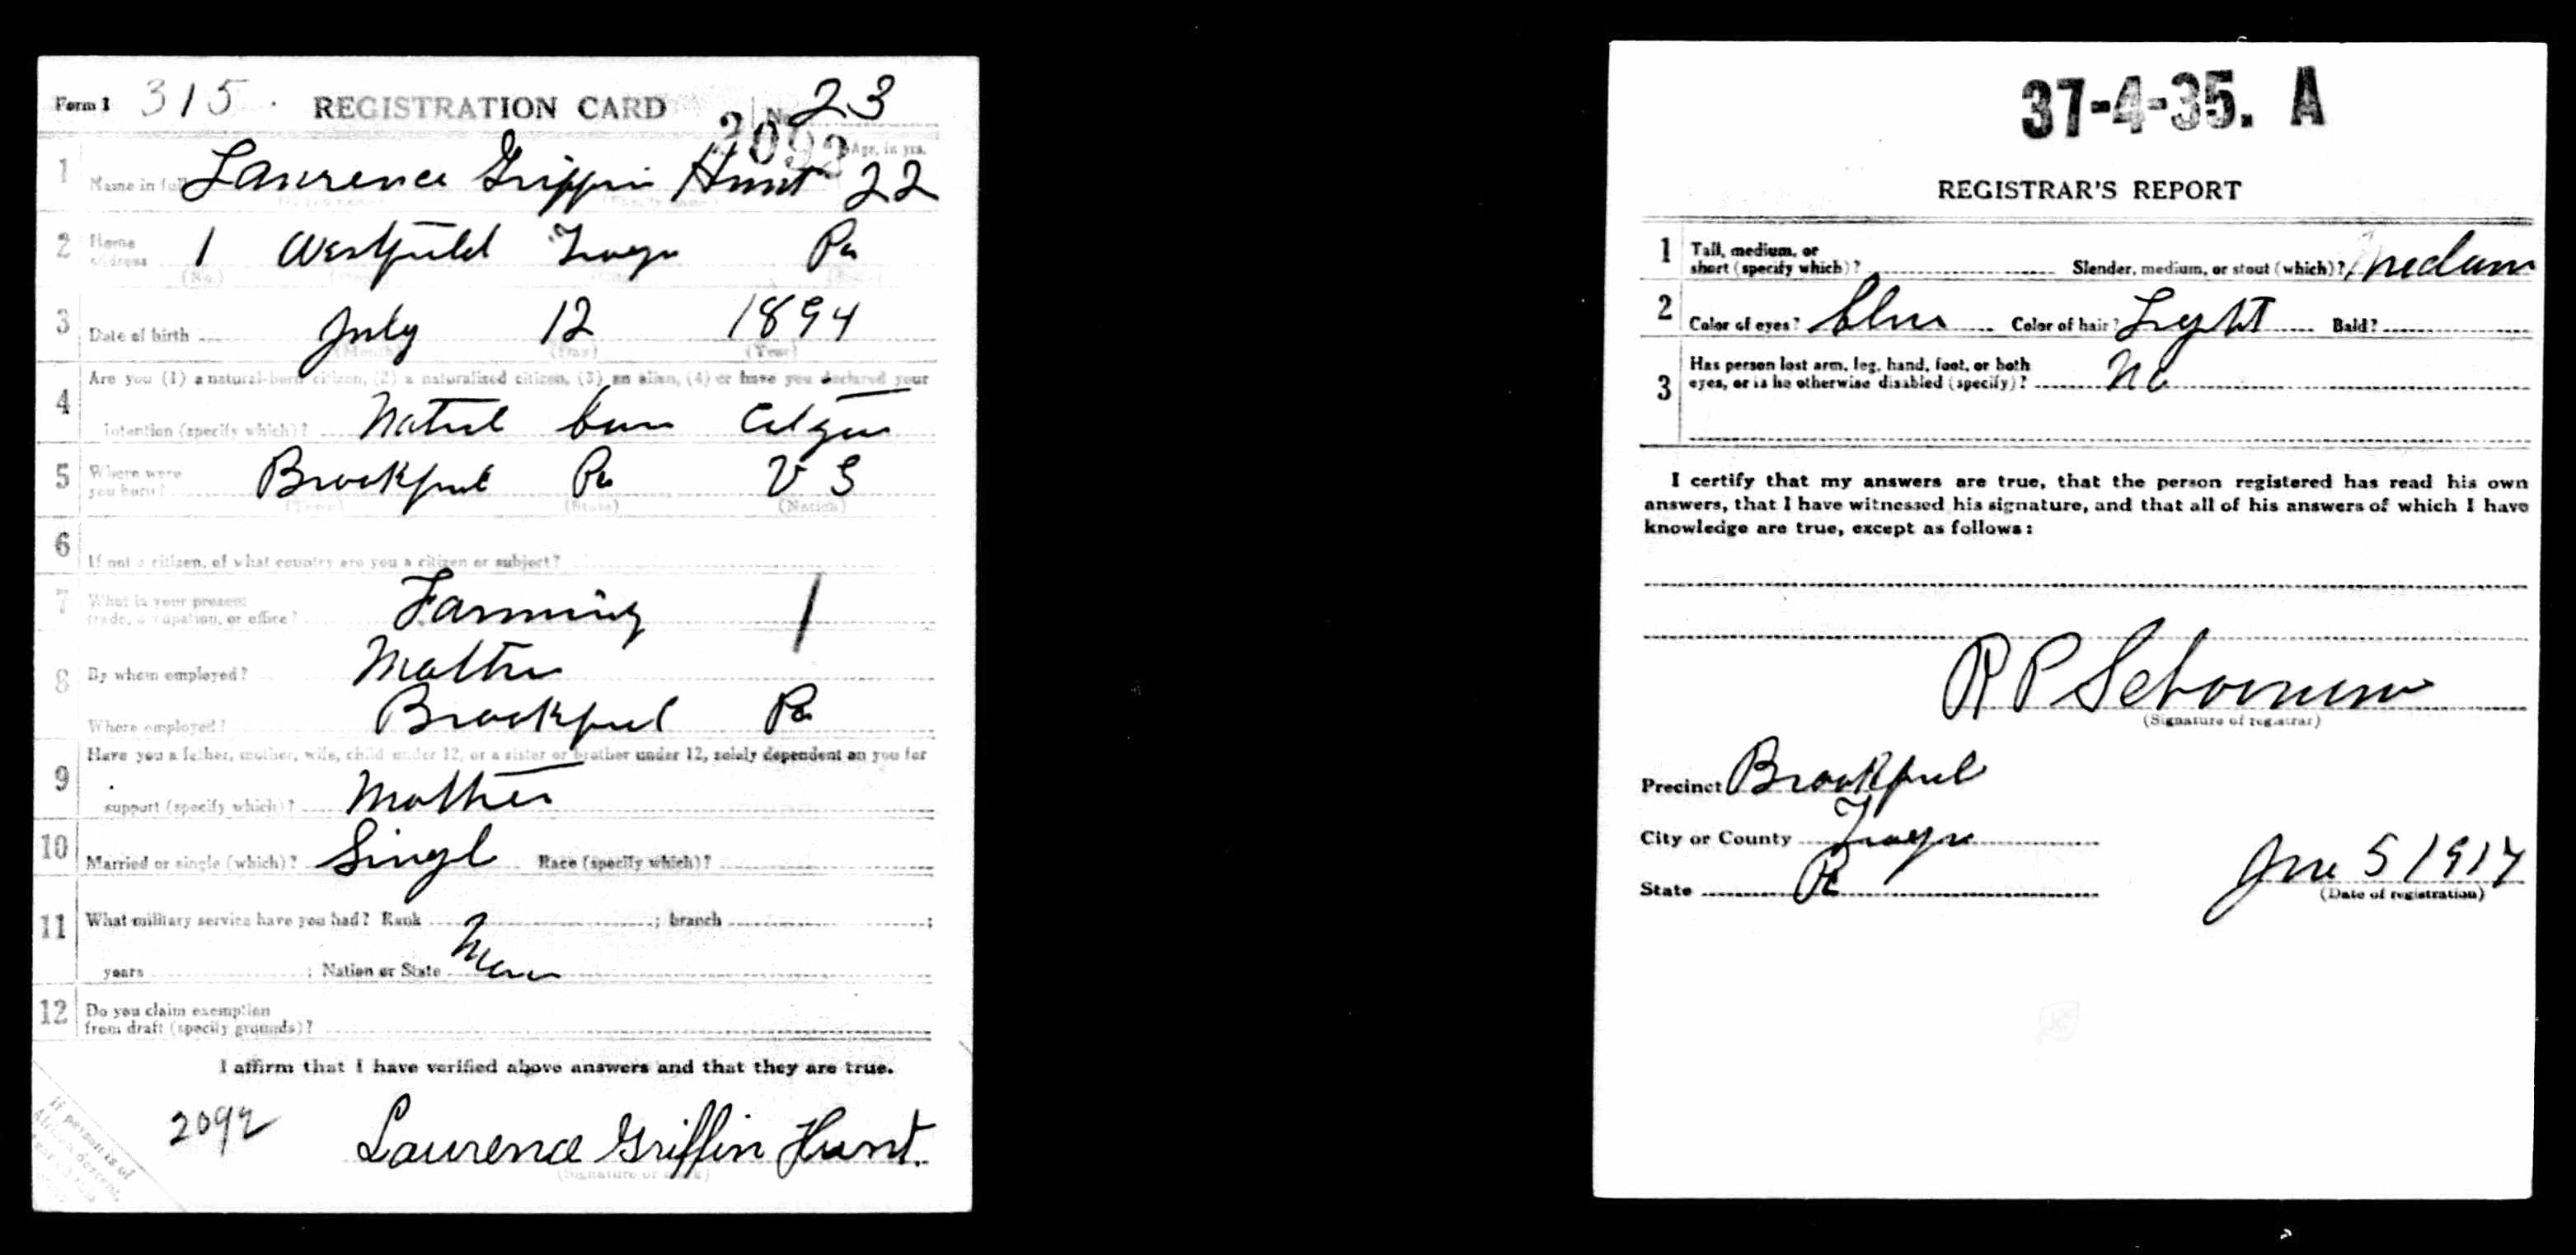 Form 1 315. REGISTRATION CARD No. 23
2092
Age, in yrs.
1 Name in full Lawrence Griffin Hunt 22
(Family name)
2 Home address 1 Westfield Tioga Pa
(No.)
3 Date of birth July 12 1894
(Month) (Day) (Year)
4 Are you (1) a natural-born citizen, (2) a naturalized citizen, (3) an alien, (4) or have you declared your
intention (specify which)? Natul born Citzen
5 Where were you born? Brookfield Pa U S
(Town) (State) (Nation)
6 If not a citizen, of what country are you a citizen or subject?
7 What is your present
trade, occupation, or office? Farming 1
8 By whom employed? Mother
Where employed? Brookfield Pa
9 Have you a father, mother, wife, child under 12, or a sister or brother under 12, solely dependent on you for
support (specify which)? Mother
10 Married or single (which)? Singl Race (specify which)?
11 What military service have you had? Rank ; branch ;
years ; Nation or State None
12 Do you claim exemption
from draft (specify grounds)?
I affirm that I have verified above answers and that they are true.
2092 Lawrence Griffin Hunt.
(Signature or mark)
If person is of
African descent,
37-4-35. A
REGISTRAR'S REPORT
1 Tall, medium, or
short (specify which)? Slender, medium, or stout (which)? Medium
2 Color of eyes? Blue Color of hair? Light Bald?
3 Has person lost arm, leg, hand, foot, or both
eyes, or is he otherwise disabled (specify)? No
I certify that my answers are true, that the person registered has read his own
answers, that I have witnessed his signature, and that all of his answers of which I have
knowledge are true, except as follows:
R P Schoonover
(Signature of registrar)
Precinct Brookfield
City or County Tioga
State Pa
June 5 1917
(Date of registration)